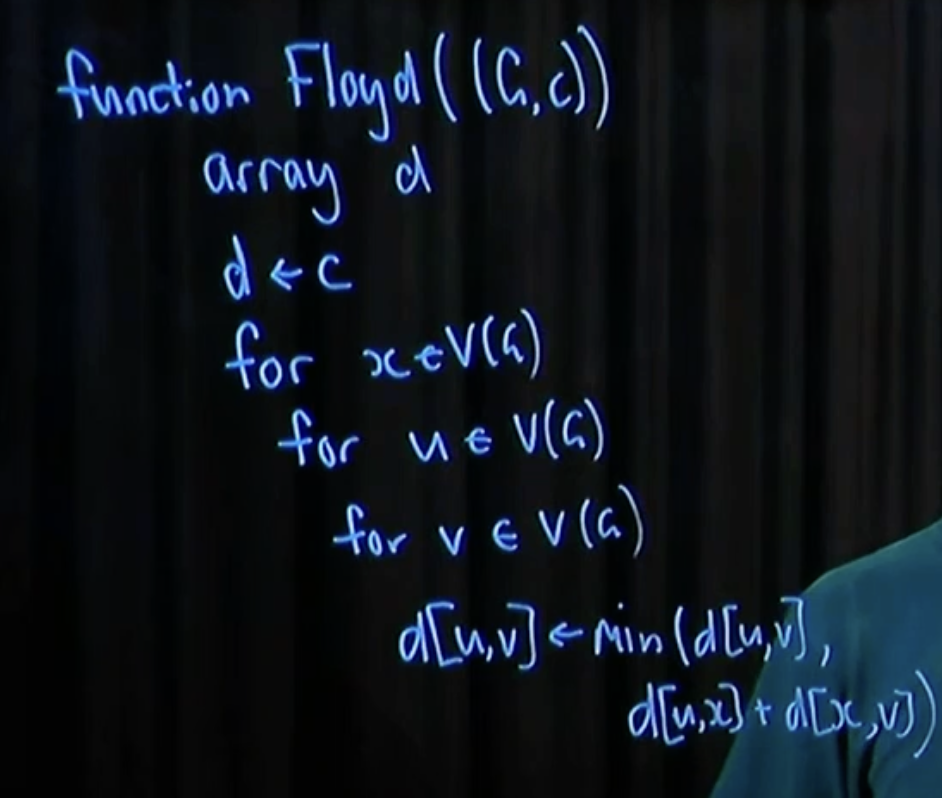 function Floyd((G,c))
array d
d ← c
for x ∈ V(G)
for u ∈ V(G)
for v ∈ V(G)
d[u,v] ← min(d[u,v],
d[u,x] + d[x,v])